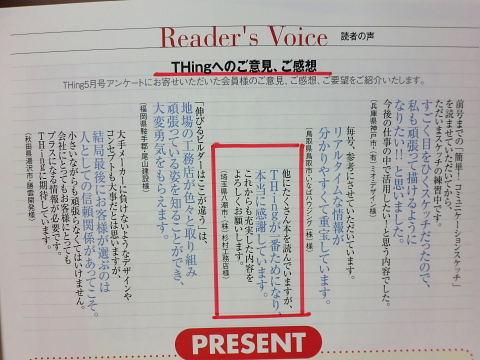 Reader's Voice 読者の声
THingへのご意見、ご感想
THing5月号アンケートにお寄せいただいた会員様のご意見、ご感想、ご要望をご紹介いたします。
前号までの「簡単!コミュニケーションスケッチ」
を読ませていただいてから、
ただいまスケッチの練習中です。
すごく目をひくスケッチだったので、
私も頑張って描けるように
なりたい!!と思いました。
今後の仕事の中で活用したい!と思う内容でした。
(兵庫県神戸市・(有)ミオデザイン様)
毎号、参考にさせていただいています。
リアルタイムな情報が
分かりやすくて重宝しています。
(鳥取県鳥取市・いなばハウジング(株)様)
他にたくさん本を読んでいますが、
THingが一番ためになり、
本当に感謝しています。
これからも充実した内容を
よろしくお願いします。
(埼玉県八潮市・(株)杉村工務店様)
「伸びるビルダーはここが違う」は、
地場の工務店が色々と取り組み
頑張っている姿を知ることができ、
大変勇気をもらえます。
(福岡県鞍手郡・尾山建設様)
大手メーカーに負けないようなデザインや
コンセプトも大事だとは思いますが、
結局最後にお客様が選ぶのは
人としての信頼関係があってこそ。
小さいながらも頑張らなくてはいけません。
会社にとってもお客様にとっても
プラスになる情報が必要です。
THingに期待しています。
(秋田県湯沢市・藤雲開発様)
PRESENT